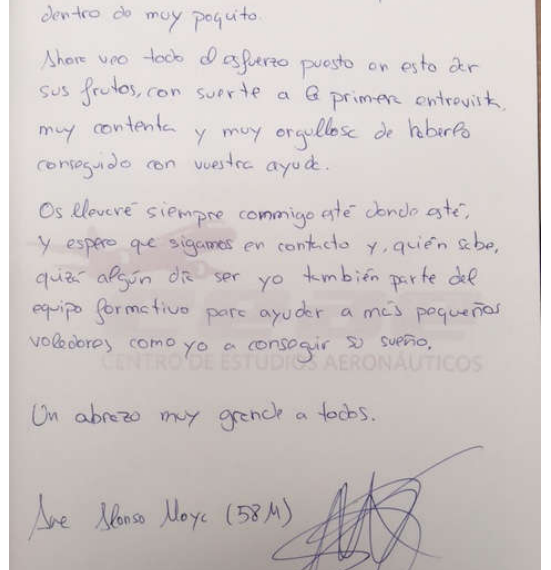 dentro de muy poquito.
Ahora veo todo el esfuerzo puesto en esto dar
sus frutos, con suerte a la primera entrevista,
muy contenta y muy orgullosa de haberlo
conseguido con vuestra ayuda.
Os llevaré siempre conmigo esté donde esté,
y espero que sigamos en contacto y, quién sabe,
quizá algún día ser yo también parte del
equipo formativo para ayudar a más pequeños
voladores como yo a conseguir su sueño.
CENTRO DE ESTUDIOS AERONÁUTICOS
Un abrazo muy grande a todos.
Ane Alonso Moya (58M)